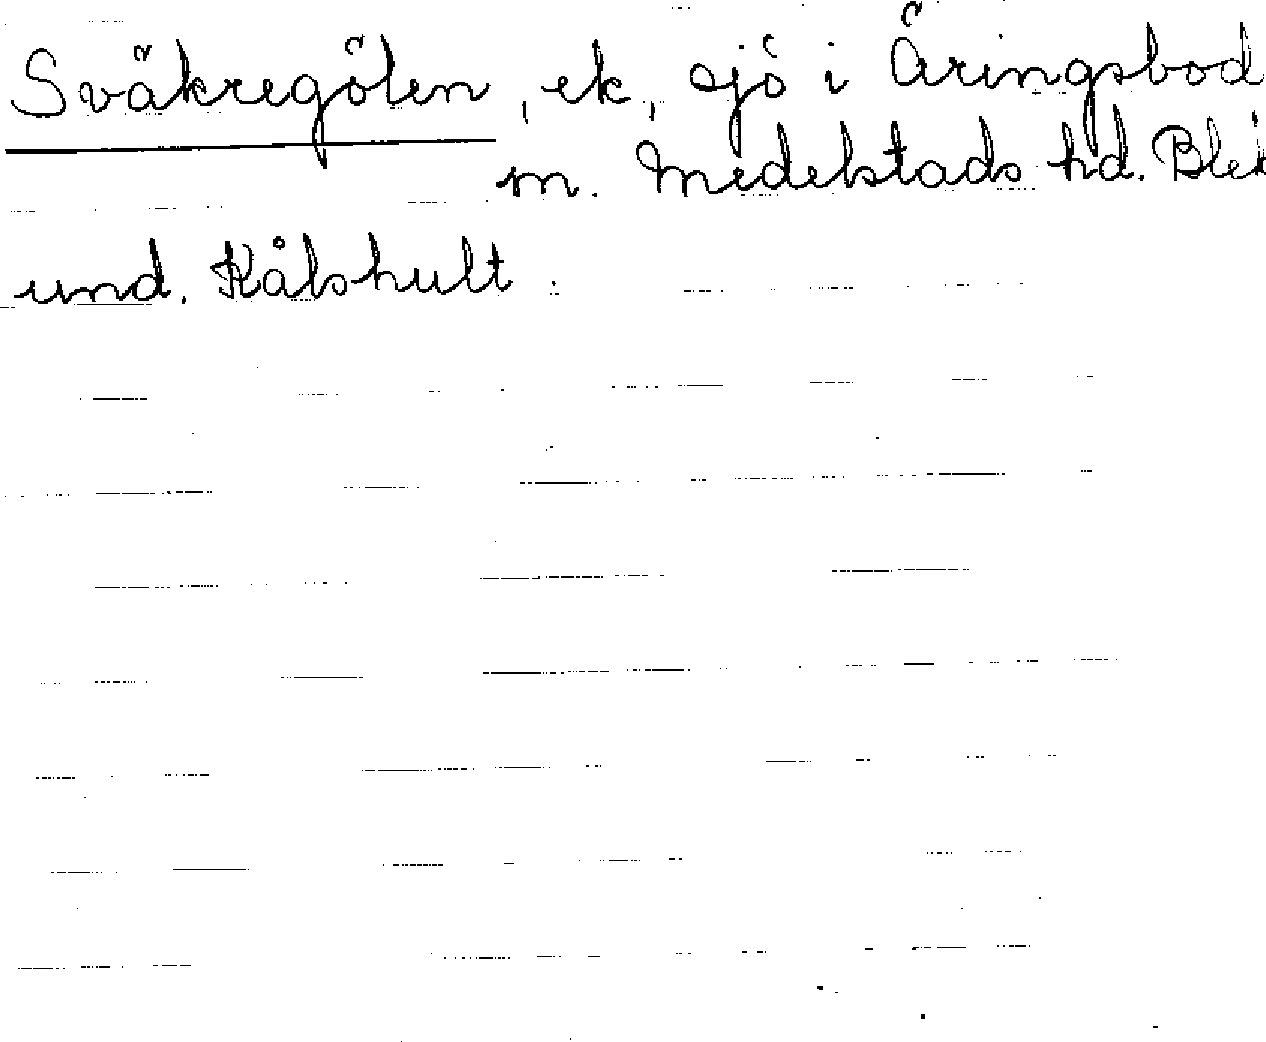 Sväkregölen, ek, sjö i Äringsbod
m. Medelstads hd. Blek
und. Kålshult.